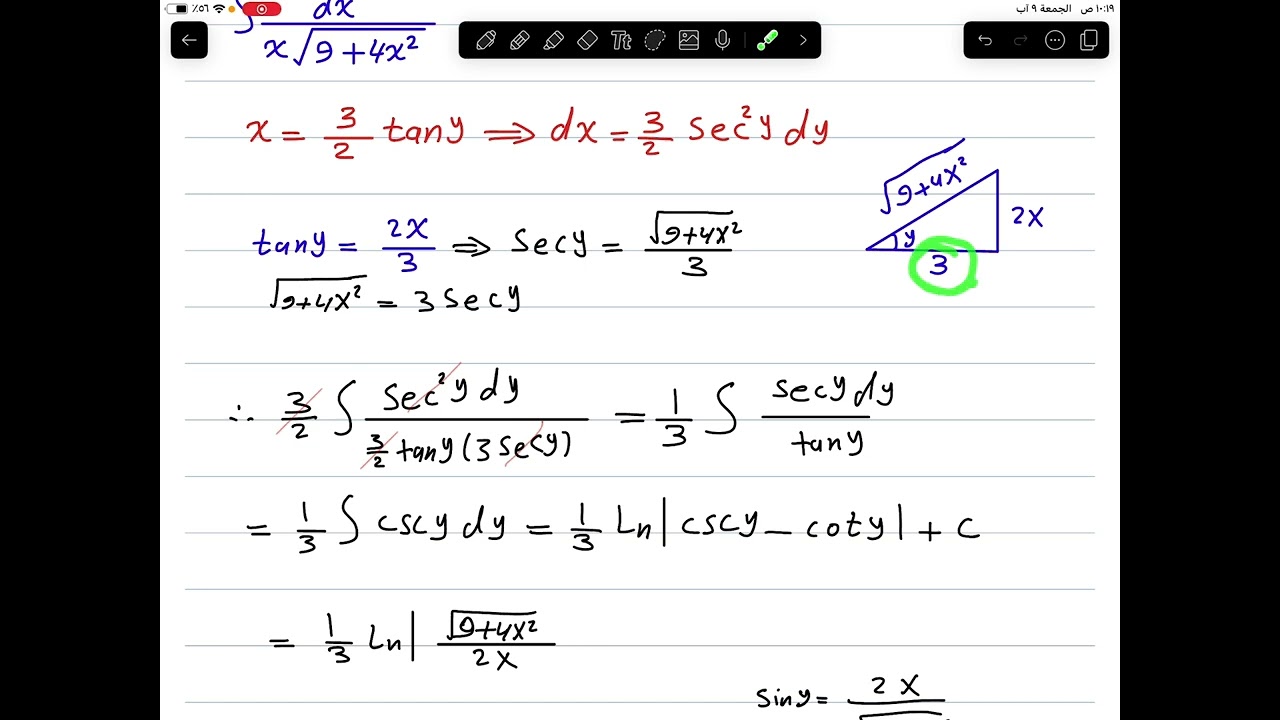 ٪٥٦ ١٠:١٩ ص الجمعة ٩ آب
∫ dx / x√(9+4x²)
Tt
x = 3/2 tan y ⟹ dx = 3/2 sec² y dy
√(9+4x²)
2x
y
3
tan y = 2x/3 ⟹ sec y = √(9+4x²)/3
√(9+4x²) = 3 sec y
∴ 3/2 ∫ sec² y dy / 3/2 tan y (3 sec y) = 1/3 ∫ sec y dy / tan y
= 1/3 ∫ csc y dy = 1/3 Ln| csc y − cot y | + c
= 1/3 Ln| √(9+4x²) / 2x
sin y = 2x